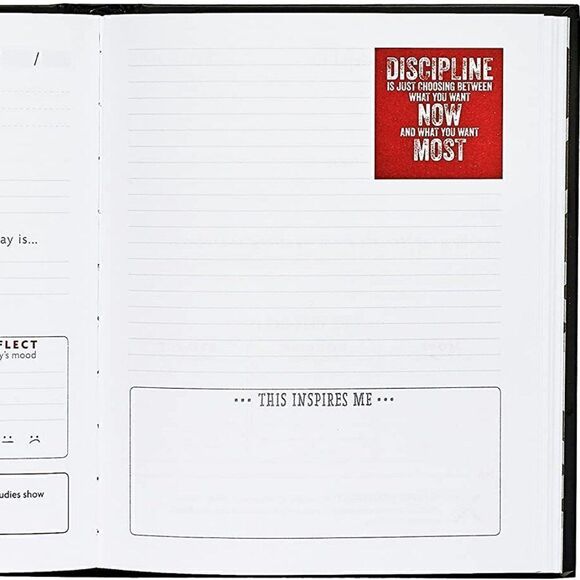 /
ay is...
FLECT
y's mood
udies show
DISCIPLINE
IS JUST CHOOSING BETWEEN
WHAT YOU WANT
NOW
AND WHAT YOU WANT
MOST
••• THIS INSPIRES ME •••